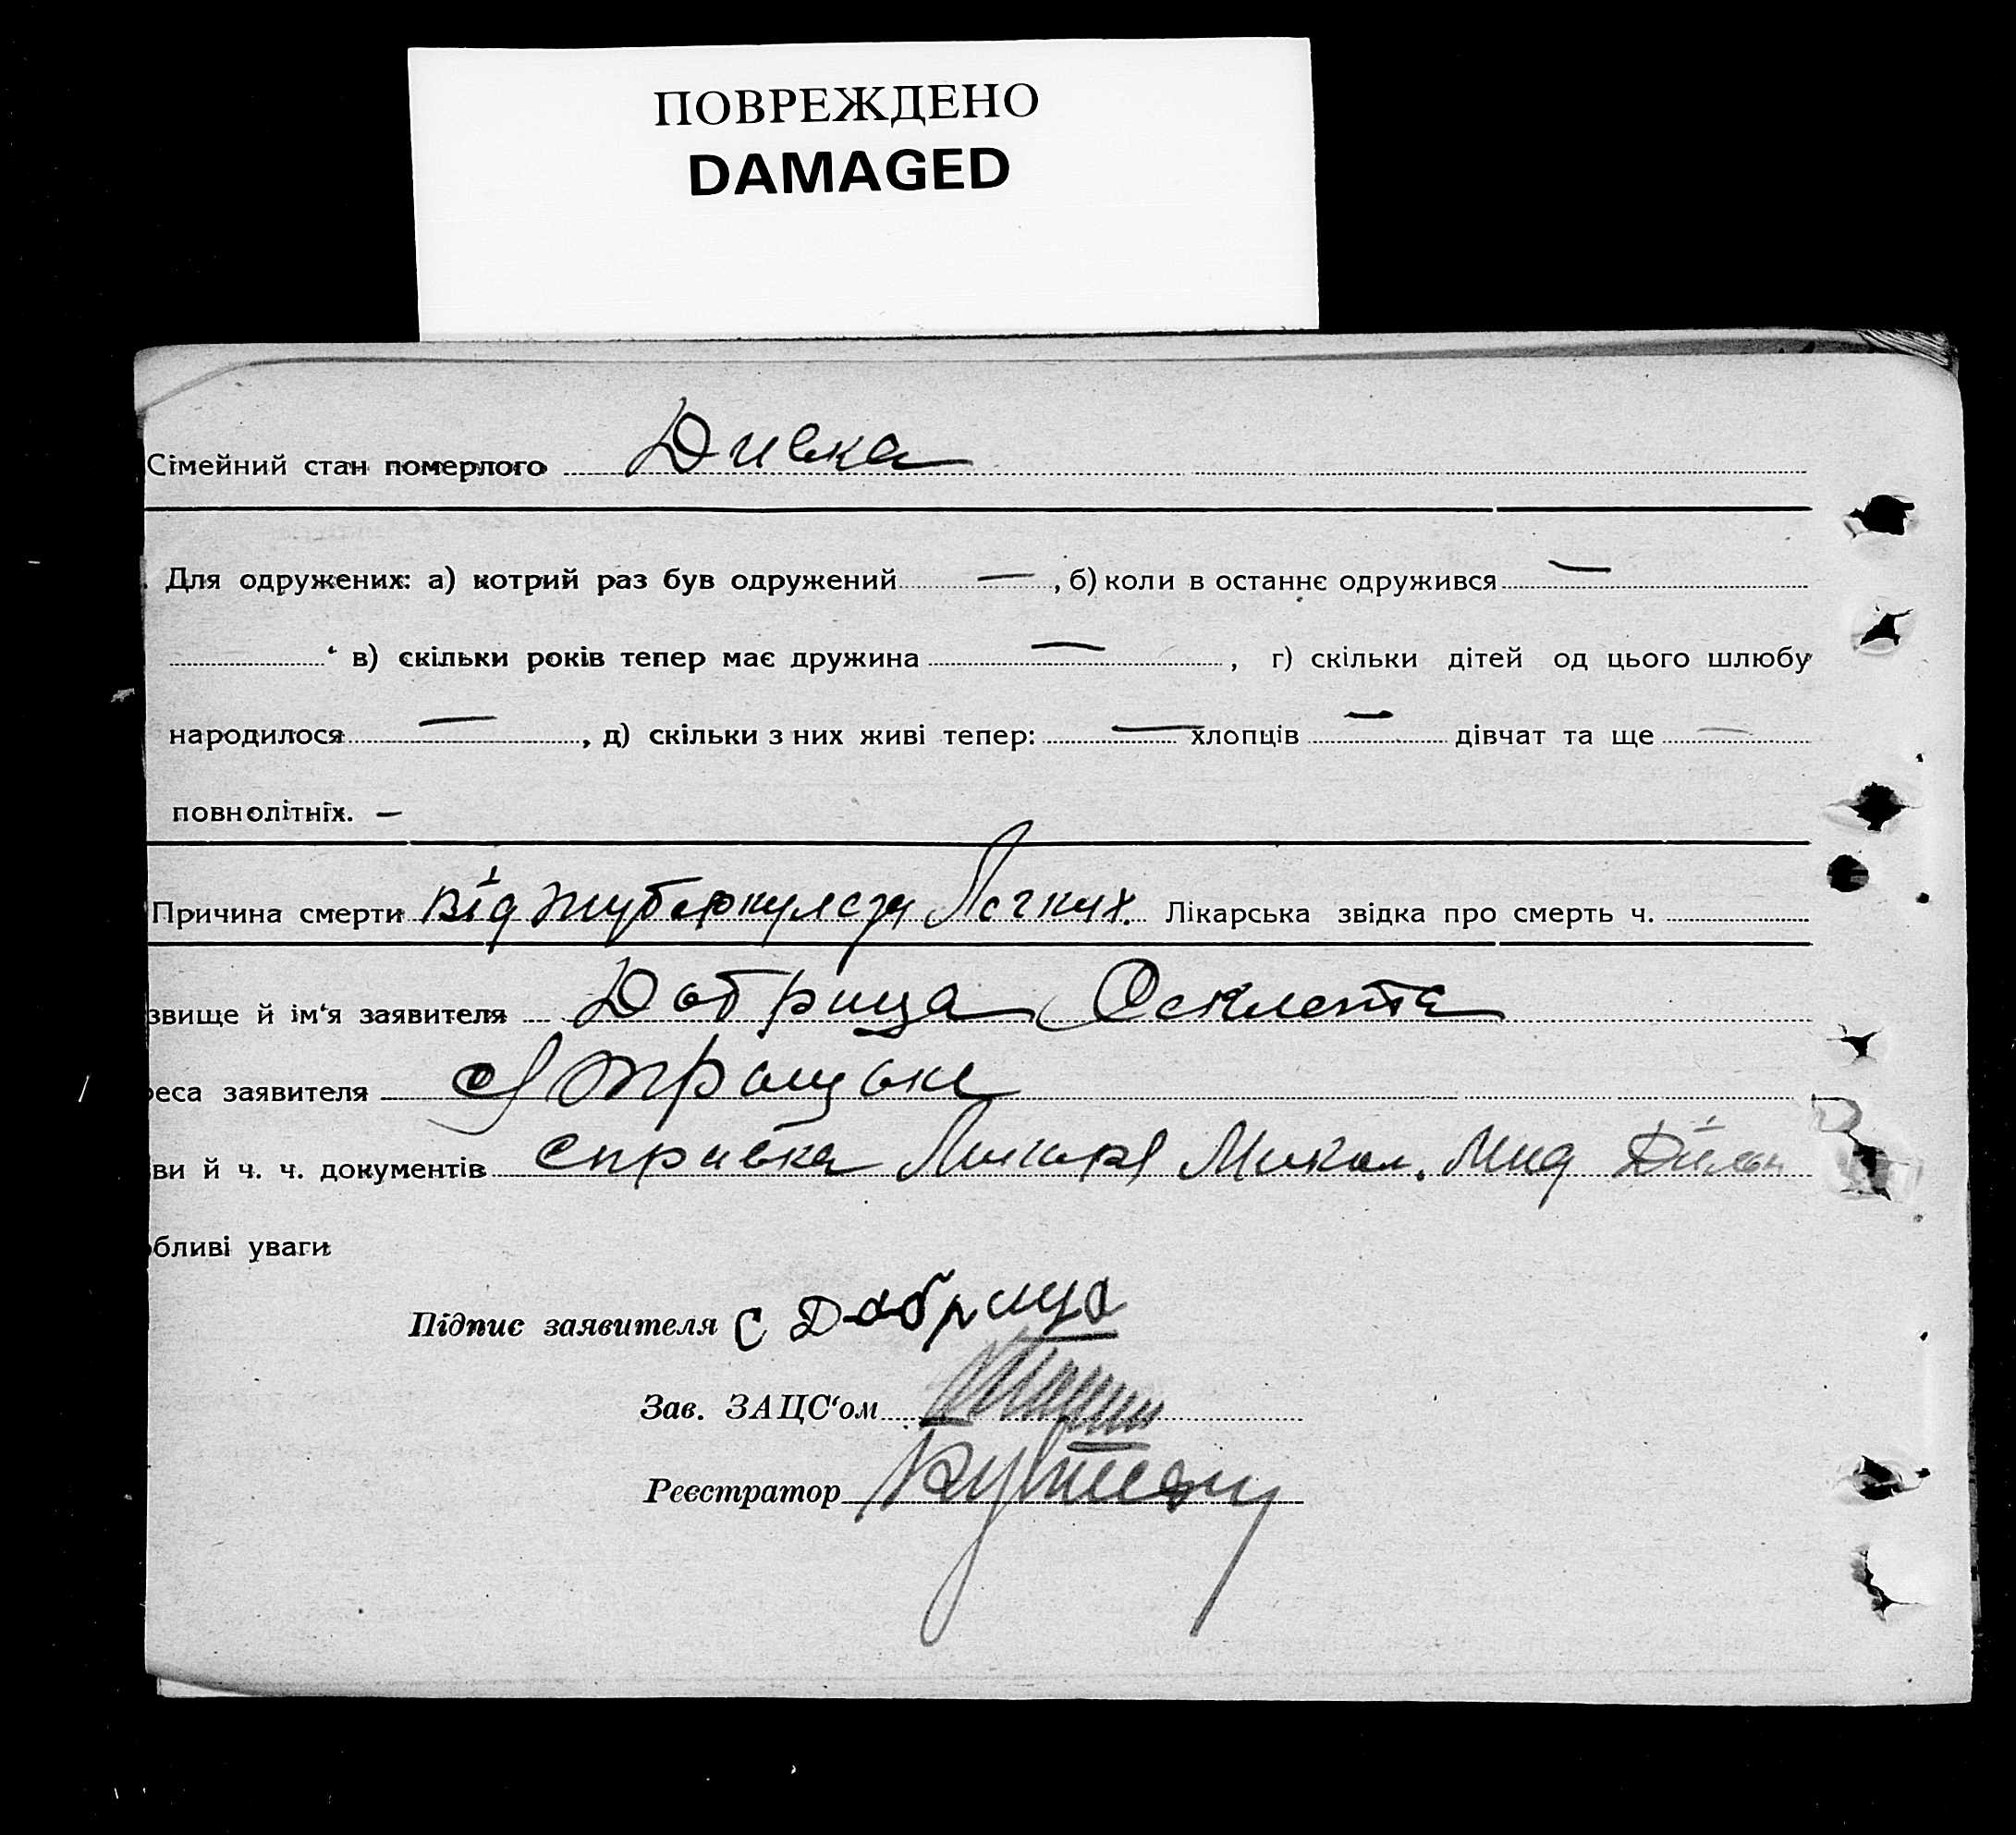 ПОВРЕЖДЕНО
DAMAGED
Сімейний стан померлого Дивка
Для одружених: а) котрий раз був одружений — , б) коли в останнє одружився —
в) скільки років тепер має дружина — , г) скільки дітей од цього шлюбу
народилося — , д) скільки з них живі тепер: — хлопців — дівчат та ще —
повнолітніх. —
Причина смерти від туберкулсзу Легких. Лікарська звідка про смерть ч.
звище й ім'я заявителя Добрица
реса заявителя
ви й ч. ч. документів справка
бливі уваги
Підпис заявителя С Добрица
Зав. ЗАЦС'ом
Реєстратор